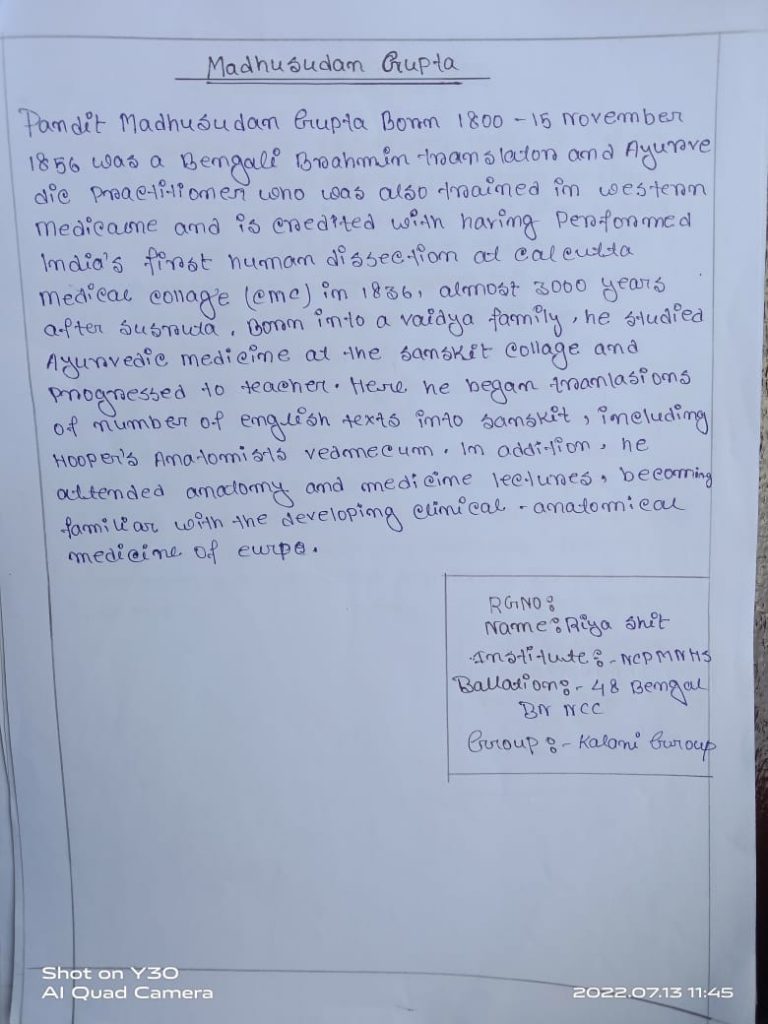 Madhusudan Gupta
Pandit Madhusudan Gupta Born 1800 - 15 november
1856 was a Bengali Brahmin translator and Ayurve
dic practitiomer who was also trained in western
medicaine and is credited with having Performed
India's first human dissection at calcutta
medical collage (cmc) in 1836, almost 3000 years
after susruta. Born into a vaidya family, he studied
Ayurvedic medicine at the sanskit collage and
progressed to teacher. Here he began tranlasions
of number of english texts into sanskit, including
Hooper's Anatomists vedmecum. In addition, he
attended anatomy and medicine lectures, becoming
familiar with the developing clinical - anatomical
medicine of eurpe.
RGNO:
Name: Riya Shit
Institute:- NCPMNHS
Ballation:- 48 Bengal
BN NCC
Guroup:- Kalani Guroup
Shot on Y30
AI Quad Camera
2022.07.13 11:45